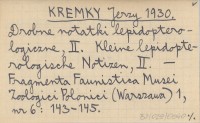 KREMKY Jerzy 1930.
Drobne notatki lepidoptero-
logiczne, II. Kleine lepidopte-
rologische Notizen, II. —
Fragmenta Faunistica Musei
Zoologici Polonici (Warszawa) 1,
nr 6: 143-145.